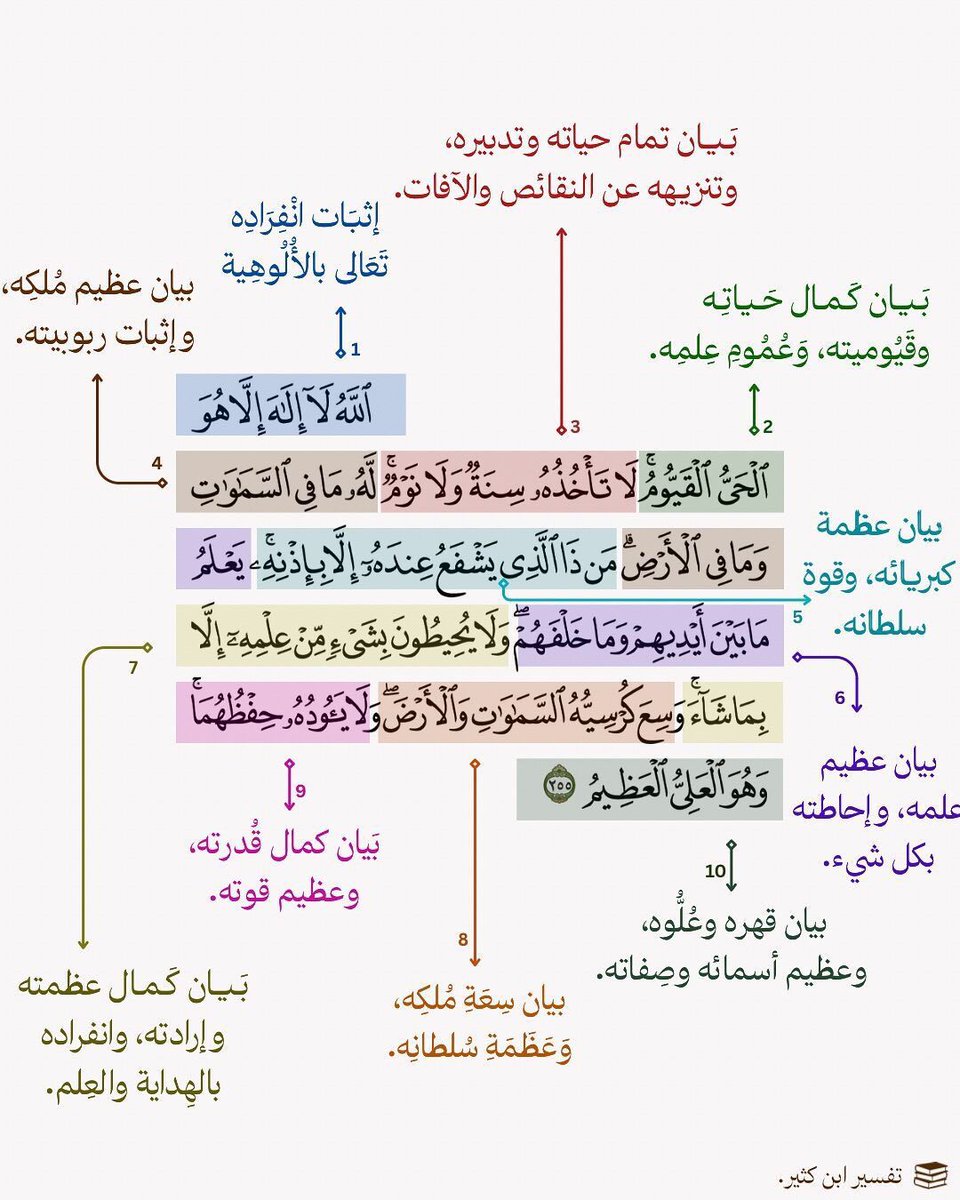 بَـيـان تمام حياته وتدبيره،
وتنزيهه عن النقائص والآفات.
إثبَات انْفِرَادِه
تَعَالى بالأُلُوهِية
بيان عظيم مُلكِه،
وإثبات ربوبيته.
بَـيـان كَـمـال حَـيـاتِـه
وقَيُوميته، وَعُمُومِ عِلمِه.
1
2
3
4
ٱللَّهُ لَآ إِلَٰهَ إِلَّا هُوَ
ٱلْحَىُّ ٱلْقَيُّومُ ۚ لَا تَأْخُذُهُۥ سِنَةٌ وَلَا نَوْمٌ ۚ لَّهُۥ مَا فِى ٱلسَّمَٰوَٰتِ
وَمَا فِى ٱلْأَرْضِ ۗ مَن ذَا ٱلَّذِى يَشْفَعُ عِندَهُۥٓ إِلَّا بِإِذْنِهِۦ ۚ يَعْلَمُ
مَا بَيْنَ أَيْدِيهِمْ وَمَا خَلْفَهُمْ ۖ وَلَا يُحِيطُونَ بِشَىْءٍ مِّنْ عِلْمِهِۦٓ إِلَّا
بِمَا شَآءَ ۚ وَسِعَ كُرْسِيُّهُ ٱلسَّمَٰوَٰتِ وَٱلْأَرْضَ ۖ وَلَا يَـُٔودُهُۥ حِفْظُهُمَا ۚ
وَهُوَ ٱلْعَلِىُّ ٱلْعَظِيمُ ٢٥٥
بيان عظمة
كبريائه، وقوة
سلطانه.
5
6
7
8
9
10
بيان عظيم
علمه، وإحاطته
بكل شيء.
بَيان كمال قُدرته،
وعظيم قوته.
بيان قهره وعُلُّوه،
وعظيم أسمائه وصِفاته.
بَـيـان كَـمـال عظمته
وإرادته، وانفراده
بالهِداية والعِلم.
بيان سِعَةِ مُلكِه،
وَعَظَمَةِ سُلطانِه.
تفسير ابن كثير.